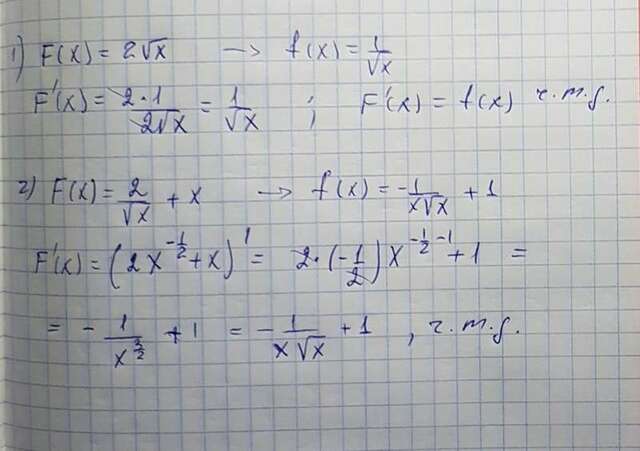 1) F(x) = 2√x → f(x) = 1/√x
F'(x) = 2·1/2√x = 1/√x ; F'(x) = f(x) ч.т.д.
2) F(x) = 2/√x + x → f(x) = -1/x√x + 1
F'(x) = (2x^(-1/2) + x)' = 2·(-1/2)x^(-1/2 -1) + 1 =
= - 1/x^(3/2) + 1 = - 1/x√x + 1 , ч.т.д.